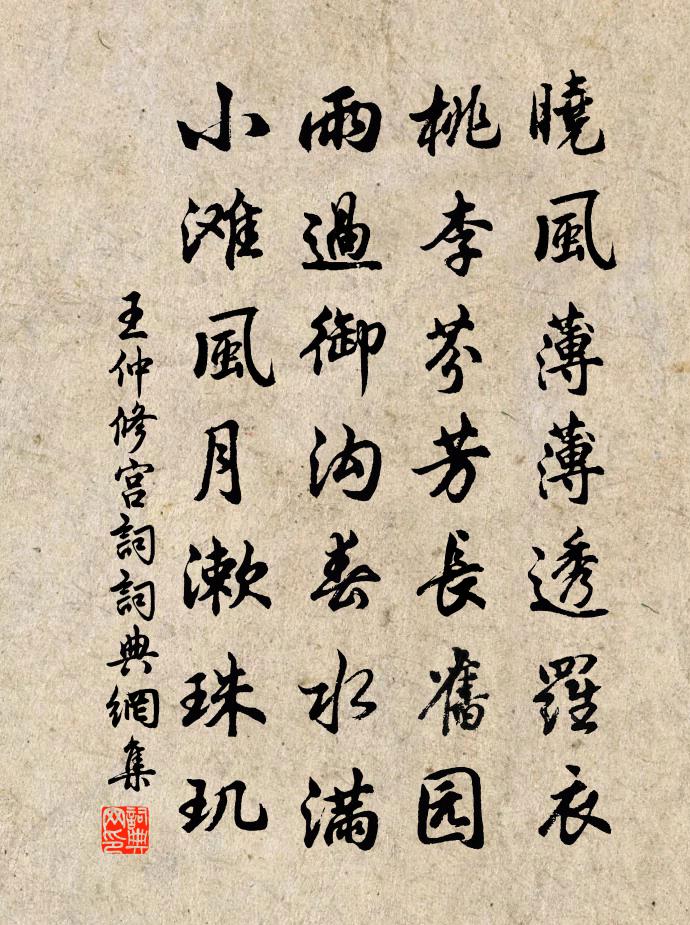 曉風薄薄透羅衣
桃李芬芳長舊园
雨過御沟春水滿
小滩風月漱珠玑
王仲修宫詞詞典網集
詞典
网印